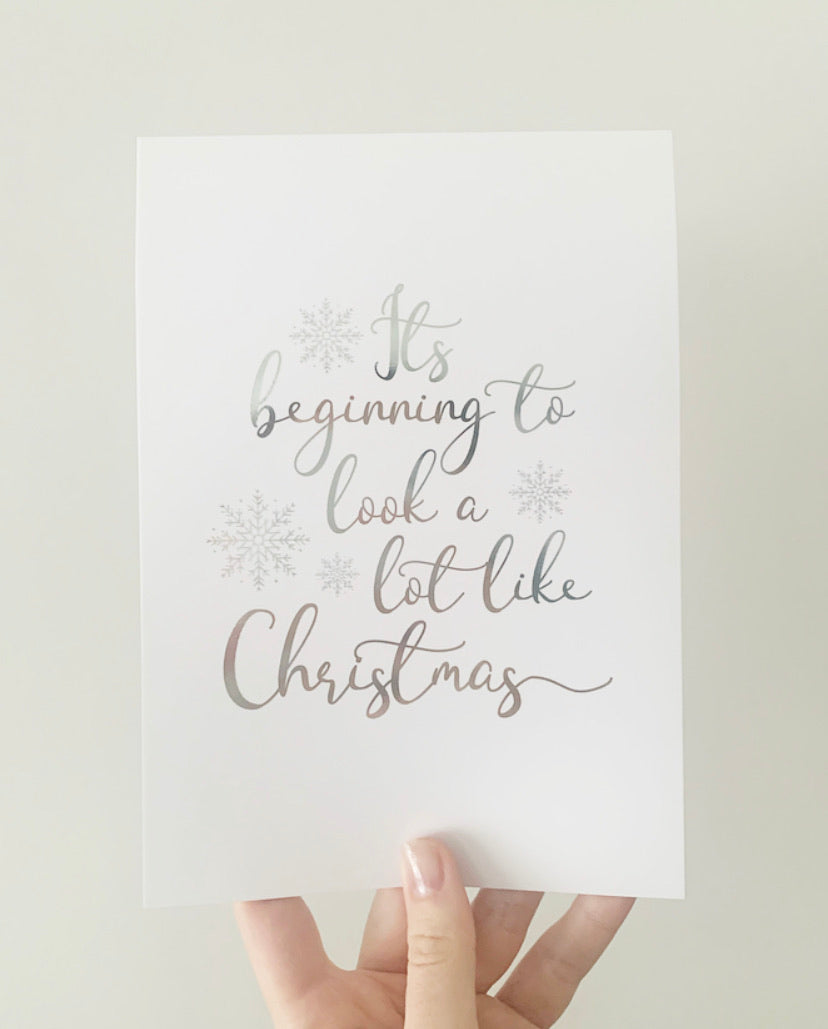 Its
beginning to
look a
lot like
Christmas